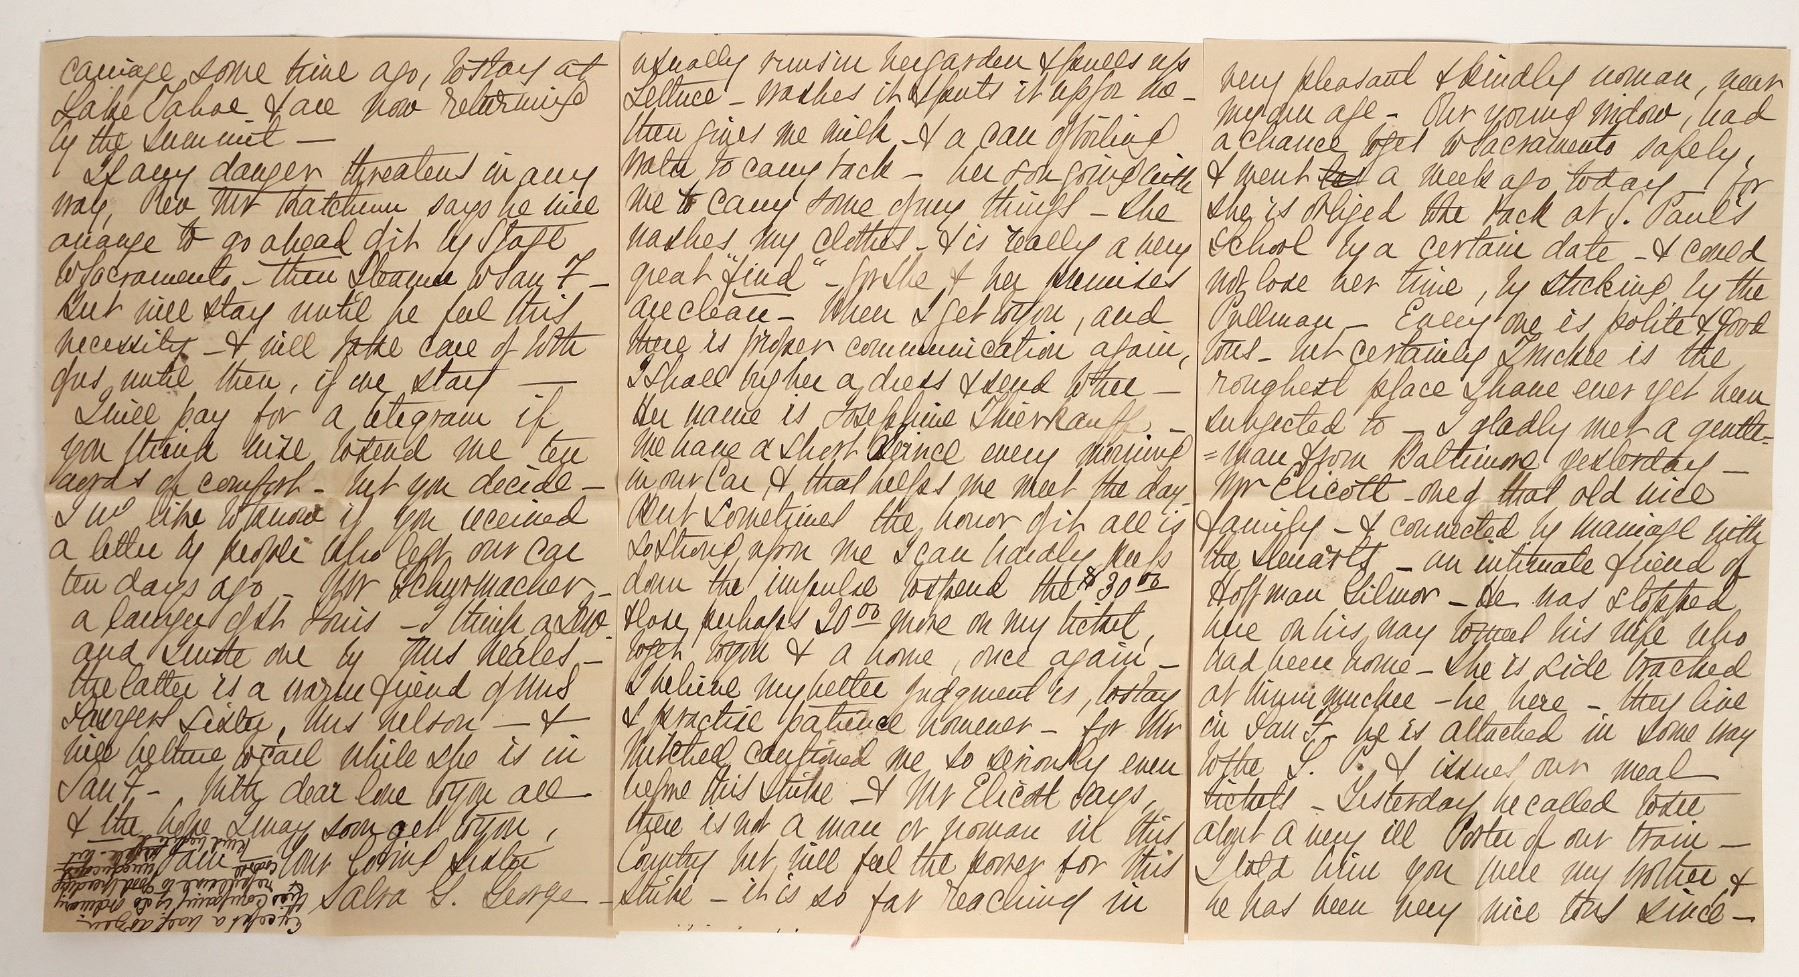 carriage some time ago, to stay at
Lake Tahoe & are now returning
by the Summit —
If any danger threatens in any
way, Rev Mr says he will
arrange to go ahead of it by Stage
to Sacramento - then Steamer to San F -
but will stay until he feel this
necessity - & will take care of both
of us until then, if we stay —
I will pay for a telegram if
you think wise to send me ten
words of comfort - but you decide -
I like to know if you received
a letter by people who left our car
ten days ago - Mr Schurmacher -
a lawyer of St Louis - I think a
and one by Mrs -
the latter is a warm friend of Mrs
Sawyers Sister, Mrs Nelson - &
will be to call while she is in
San F - With dear love to you all
& the hope I may soon get to you,
I am - Your loving Sister
Salva G. George -
Except a half dozen
this company is so ordinary
&
good reading
people but
usually runs in her garden & pulls up
Lettuce - washes it & puts it up for me -
then gives me milk - & a can of boiling
water to carry back - her son going with
me to carry some of my things - She
washes my clothes - & is really a very
great "find" - for she & her premises
are clean - When I get to you, and
there is proper communication again,
I shall buy her a dress & send to her -
Her name is Josephine Thierkauff -
We have a short service every morning
in our Car, & that helps me meet the day
But sometimes the horror of it all is
so strong upon me I can hardly keep
down the impulse to spend the $30 00
& lose perhaps 20 00 more on my ticket,
to get to you & a home, once again -
I believe my better judgment is, to stay
& practise patience however - for Mr
Mitchell cautioned me so seriously even
before this strike - & Mr Elicott says,
there is not a man or woman in this
Country but will feel the power for this
strike - it is so far reaching in
very pleasant & kindly woman, near
my own age - Our young widow, had
a chance to get to Sacramento safely,
& went a week ago today - for
she is obliged to be back at S. Paul's
School by a certain date - & could
not lose her time, by sticking by the
Pullman - Every one is polite & good
to us - but certainly Truckee is the
roughest place I have ever yet been
subjected to - I gladly met a gentle=
=man from Baltimore yesterday -
Mr Elicott - one of that old nice
family - & connected by marriage with
the Stewarts - an intimate friend of
Hoffman Gilmor - He has stopped
here on his way to meet his wife who
had been home - She is side tracked
at Winnimuchee - he here - they live
in San F. - he is attached in some way
to the S. P. & issues our meal
tickets - Yesterday he called to see
about a very ill Porter of our train -
I told him you were my brother &
he has been very nice to us since -